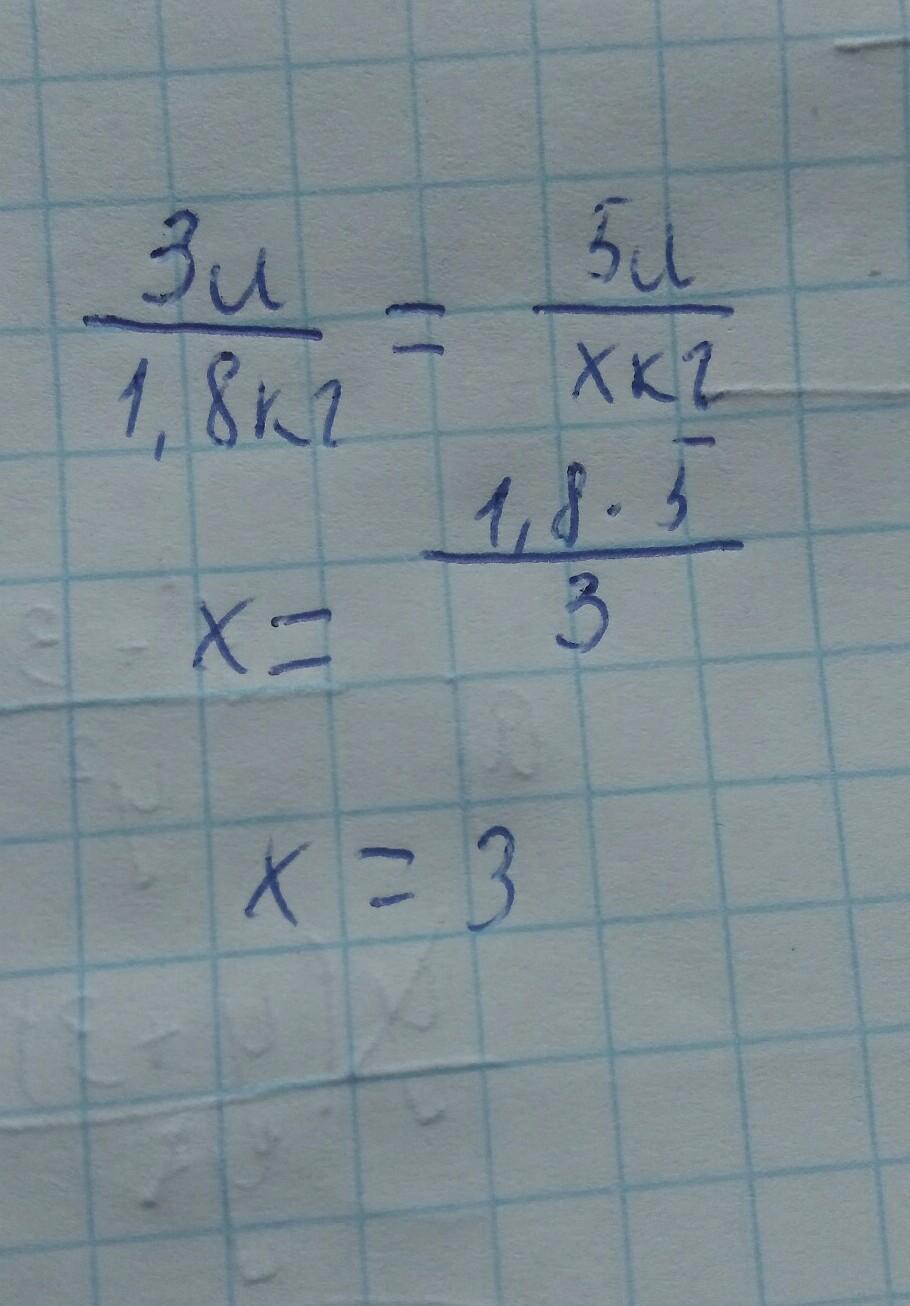 3и/1,8кг = 5и/xкг
x = 1,8·5/3
x = 3